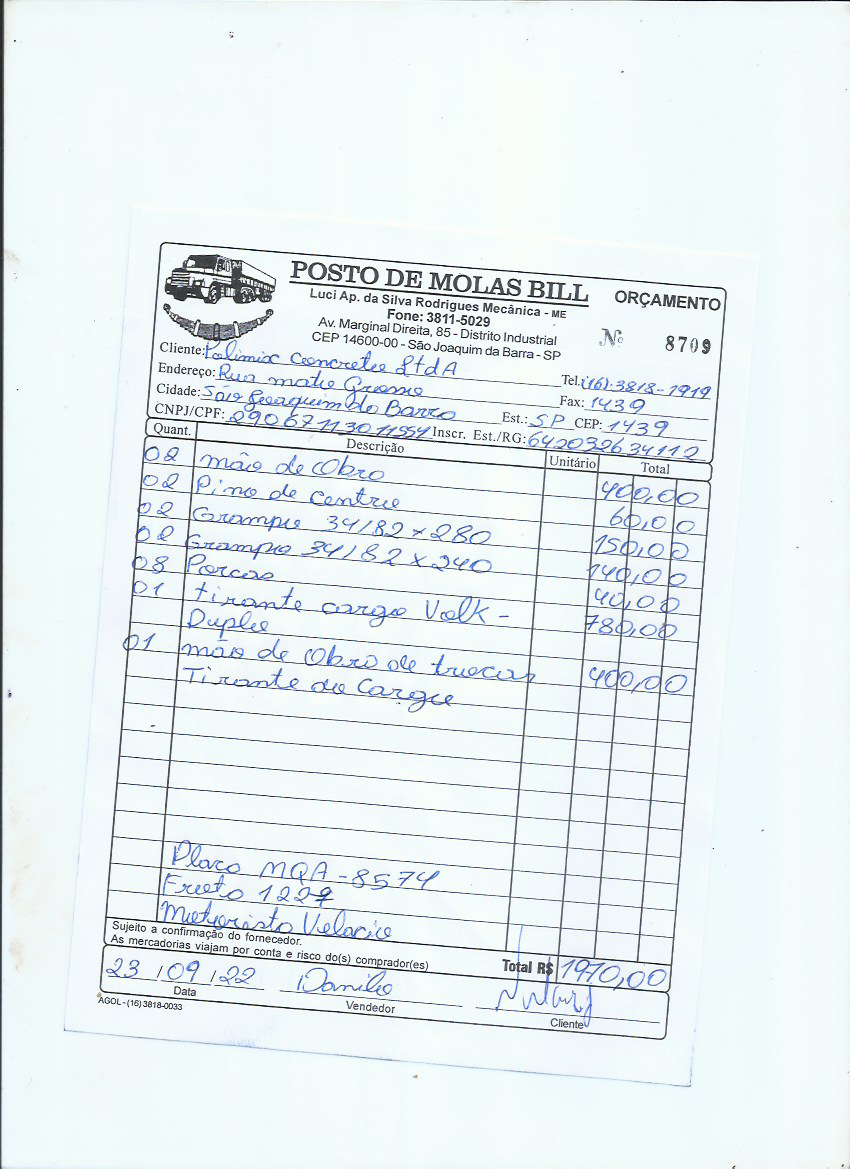 POSTO DE MOLAS BILL
ORÇAMENTO
Luci Ap. da Silva Rodrigues Mecânica - ME
Fone: 3811-5029
Av. Marginal Direita, 85 - Distrito Industrial
CEP 14600-00 - São Joaquim da Barra - SP
Nº 8709
Cliente: Polimix Concreto LtdA
Tel.: (16) 3818-1919
Endereço: Rua mato Grosso
Fax: 1439
Cidade: São Joaquim do Barro Est.: SP CEP: 1439
CNPJ/CPF: Inscr. Est./RG: 642032634112
Quant. Descrição Unitário Total
02 mão de Obro 400,00
02 Pino de Centro 60,00
02 Grampo 34/82 x 280 150,00
02 Grampo 34/82 x 240 140,00
08 Porcas 40,00
01 tirante cargo Volk - 780,00
Duplo
01 mão de Obro de trocar 400,00
Tirante do Cargo
Placo MQA-8574
Freto 1227
Motoristo Velacio
Sujeito a confirmação do fornecedor.
As mercadorias viajam por conta e risco do(s) comprador(es)
Total R$ 1970,00
23 / 09 / 22 Danilo
Data Vendedor Cliente
AGOL - (16) 3818-0033